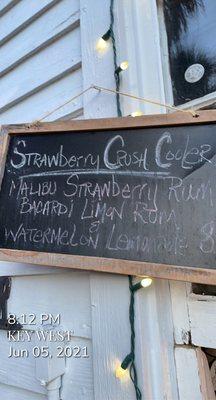 STRAWBERRY CRUSH COOLER
MALIBU STRAWBERRY RUM
BACARDI LIMÓN RUM
&
WATERMELON LEMONADE 8
8:12 PM
KEY WEST
Jun 05, 2021